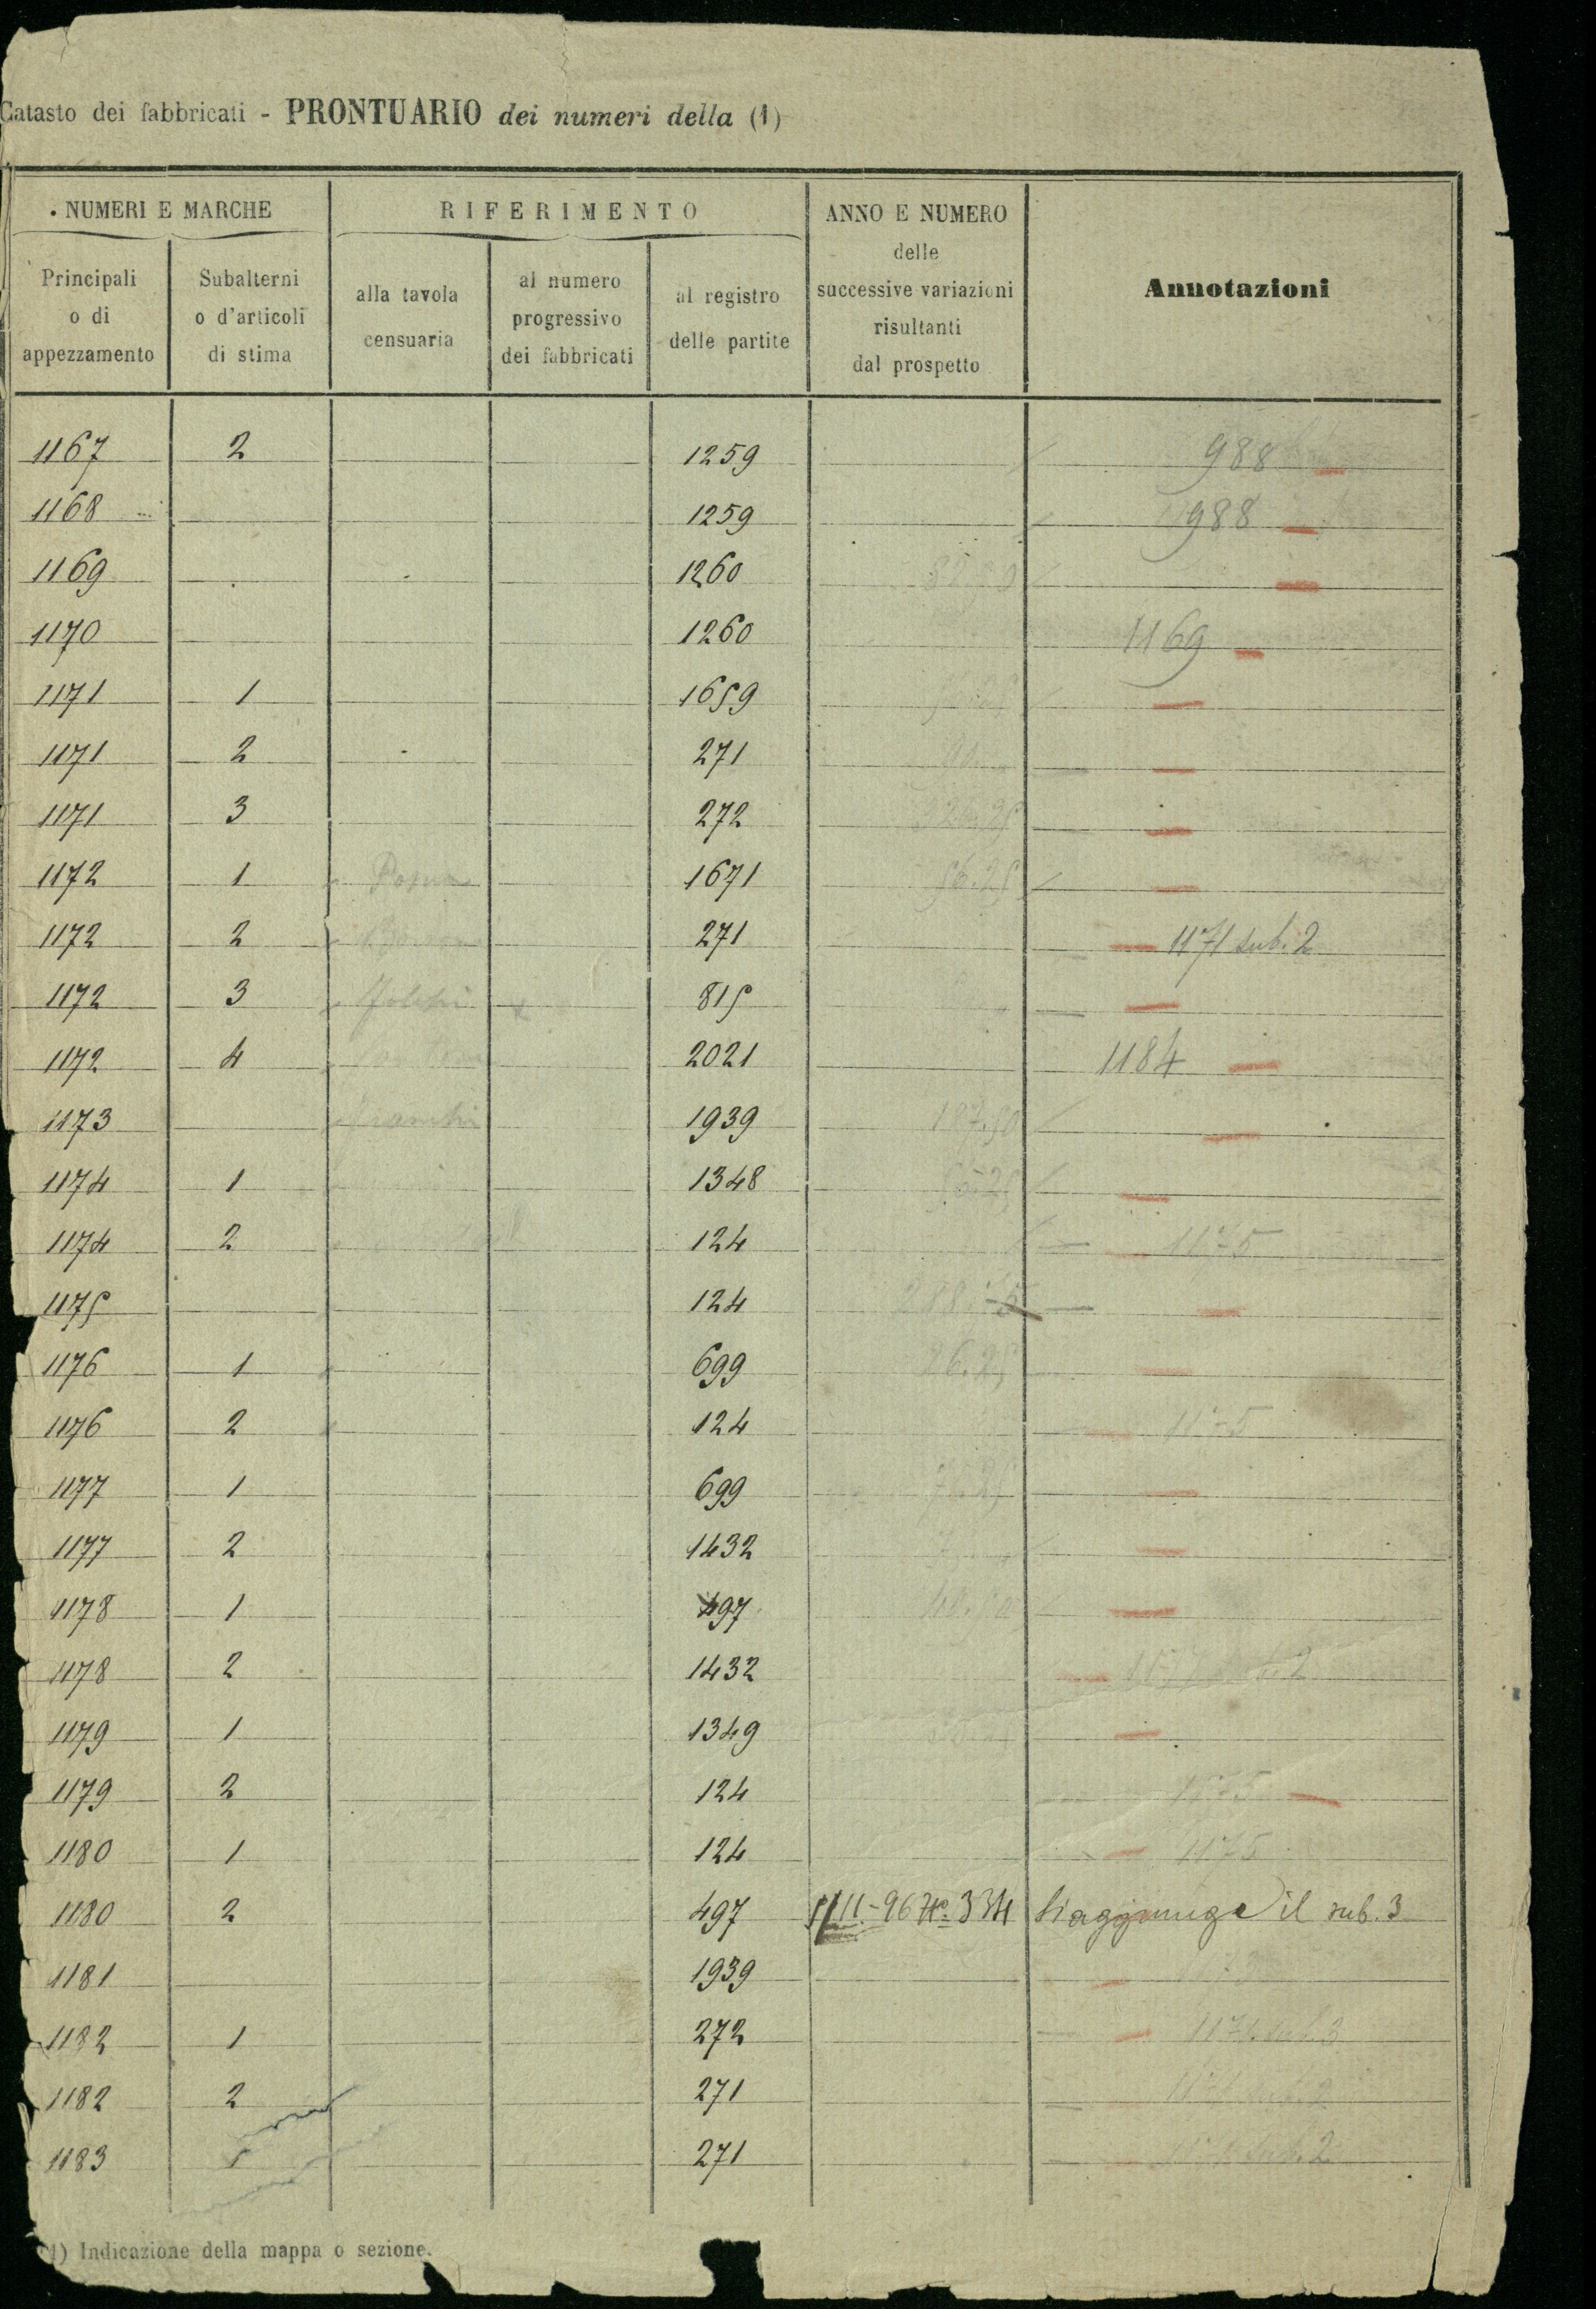 Catasto dei fabbricati - PRONTUARIO dei numeri della (1)
NUMERI E MARCHE
RIFERIMENTO
ANNO E NUMERO
delle
successive variazioni
risultanti
dal prospetto
Annotazioni
Principali
o di
appezzamento
Subalterni
o d'articoli
di stima
alla tavola
censuaria
al numero
progressivo
dei fabbricati
al registro
delle partite
1167 2 1259 988
1168 1259 988
1169 1260
1170 1260 1169
1171 1 1659
1171 2 271
1171 3 272 26.25
1172 1 1671 56.25
1172 2 271 1171 sub. 2
1172 3 815
1172 4 2021 1184
1173 1939 187.50
1174 1 1348
1174 2 124 1175
1175 124
1176 1 699 26.25
1176 2 124 1175
1177 1 699
1177 2 1432
1178 1 497
1178 2 1432 1177 sub. 2
1179 1 1349
1179 2 124 1175
1180 1 124 1175
1180 2 497 5/11-96 N.º 334 Si aggiunge il sub. 3
1181 1939 1173
1182 1 272 1171 sub. 3
1182 2 271 1171 sub. 2
1183 271 1171 sub. 2
(1) Indicazione della mappa o sezione.